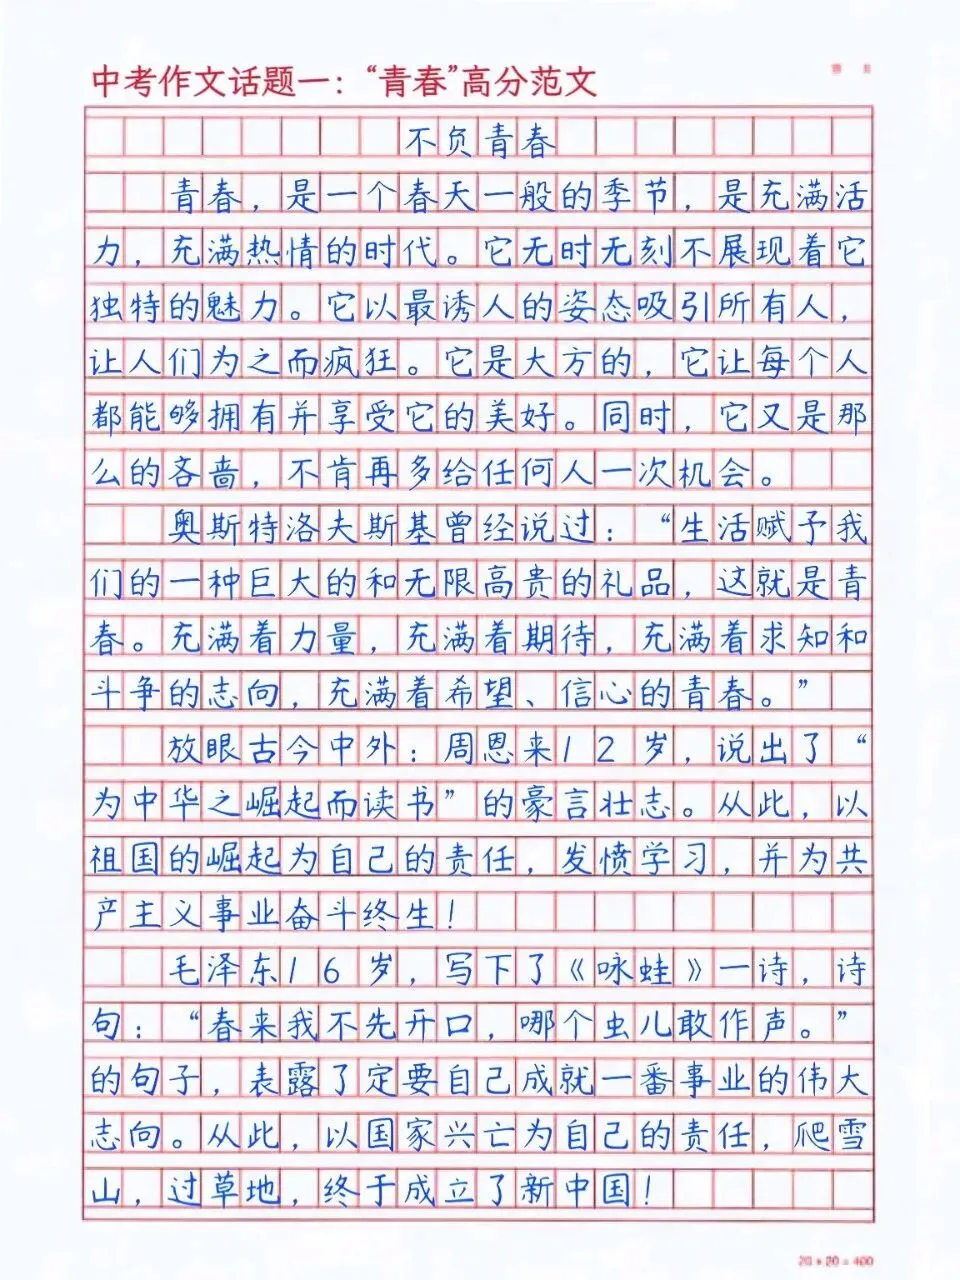 中考作文话题一：“青春”高分范文
不负青春
青春，是一个春天一般的季节，是充满活
力，充满热情的时代。它无时无刻不展现着它
独特的魅力。它以最诱人的姿态吸引所有人，
让人们为之而疯狂。它是大方的，它让每个人
都能够拥有并享受它的美好。同时，它又是那
么的吝啬，不肯再多给任何人一次机会。
奥斯特洛夫斯基曾经说过：“生活赋予我
们的一种巨大的和无限高贵的礼品，这就是青
春。充满着力量，充满着期待，充满着求知和
斗争的志向，充满着希望、信心的青春。”
放眼古今中外：周恩来12岁，说出了“
为中华之崛起而读书”的豪言壮志。从此，以
祖国的崛起为自己的责任，发愤学习，并为共
产主义事业奋斗终生！
毛泽东16岁，写下了《咏蛙》一诗，诗
句：“春来我不先开口，哪个虫儿敢作声。”
的句子，表露了定要自己成就一番事业的伟大
志向。从此，以国家兴亡为自己的责任，爬雪
山，过草地，终于成立了新中国！
20*20=400